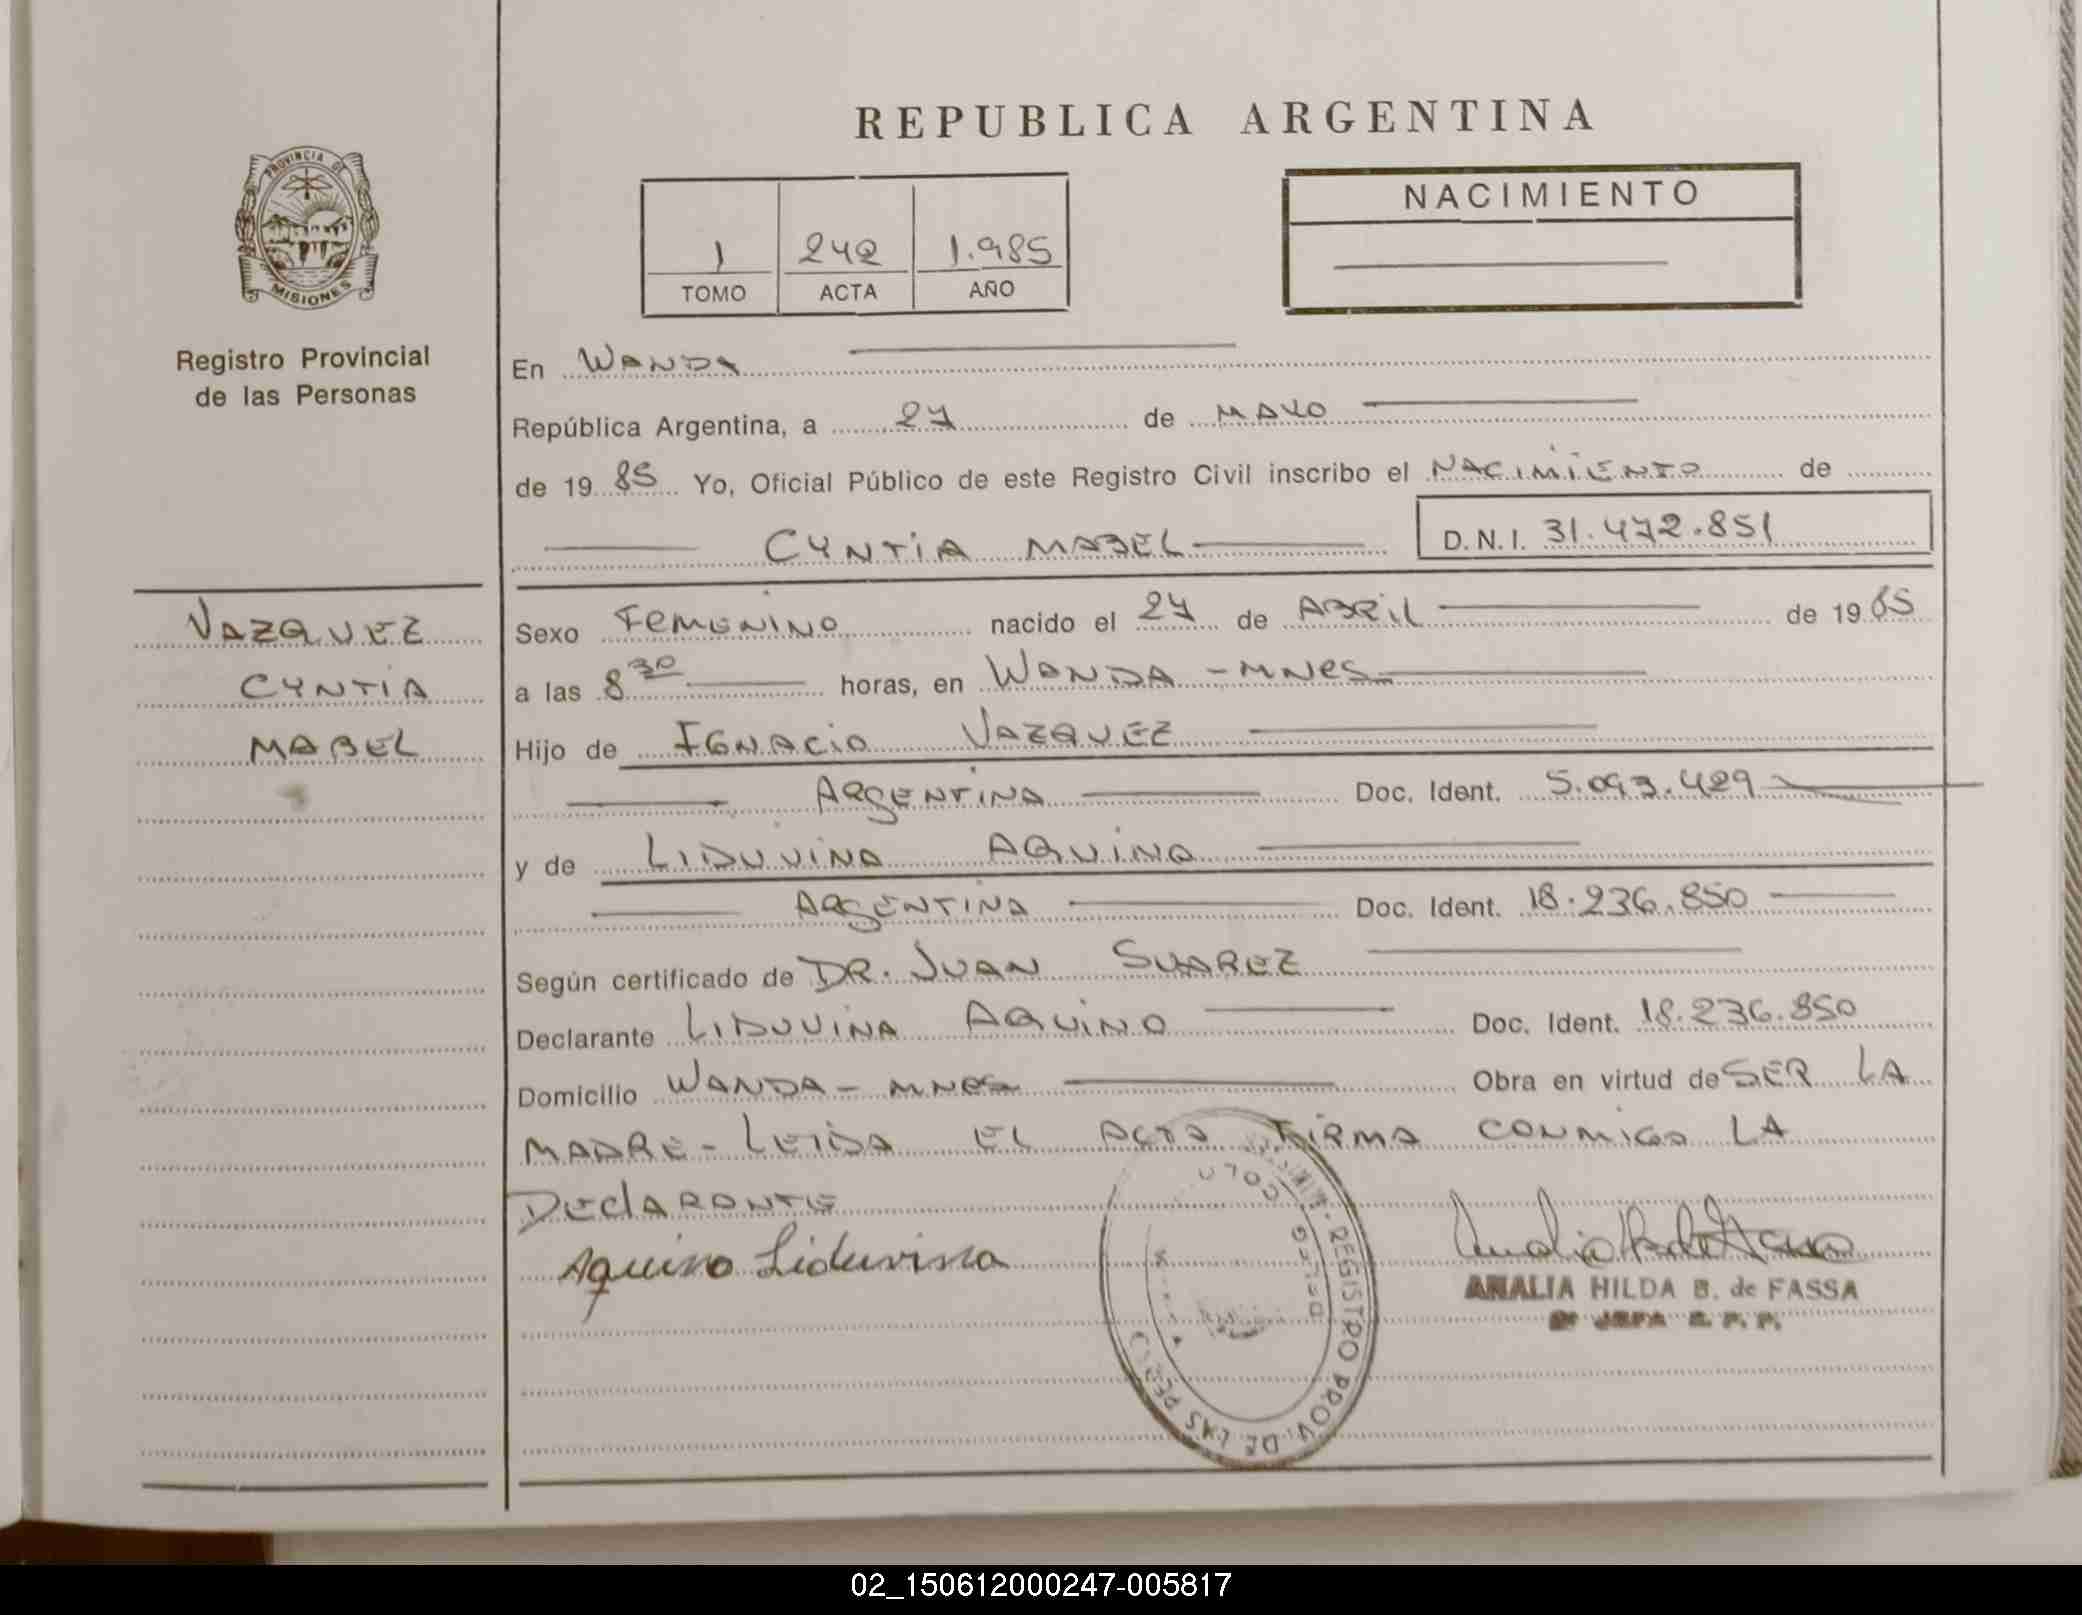 REPUBLICA ARGENTINA
PROVINCIA DE
MISIONES
Registro Provincial
de las Personas
NACIMIENTO
1 242 1.985
TOMO ACTA AÑO
En WANDA
República Argentina, a 27 de MAYO
de 1985 Yo, Oficial Público de este Registro Civil inscribo el NACIMIENTO de
CYNTIA MABEL D.N.I. 31.472.851
VAZQUEZ
CYNTIA
MABEL
Sexo FEMENINO nacido el 27 de ABRIL de 1985
a las 8 30 horas, en WANDA - MNES
Hijo de IGNACIO VAZQUEZ
ARGENTINA Doc. Ident. 5.093.429
y de LIDUVINA AQUINO
ARGENTINA Doc. Ident. 18.236.850
Según certificado de DR. JUAN SUAREZ
Declarante LIDUVINA AQUINO Doc. Ident. 18.236.850
Domicilio WANDA - MNES Obra en virtud de SER LA
MADRE - LEIDA EL ACTA FIRMA CONMIGO LA
DECLARANTE
Aquino Liduvina
REGISTRO PROV. DE LAS PERS
ANALIA HILDA B. de FASSA
JEFA
02_150612000247-005817